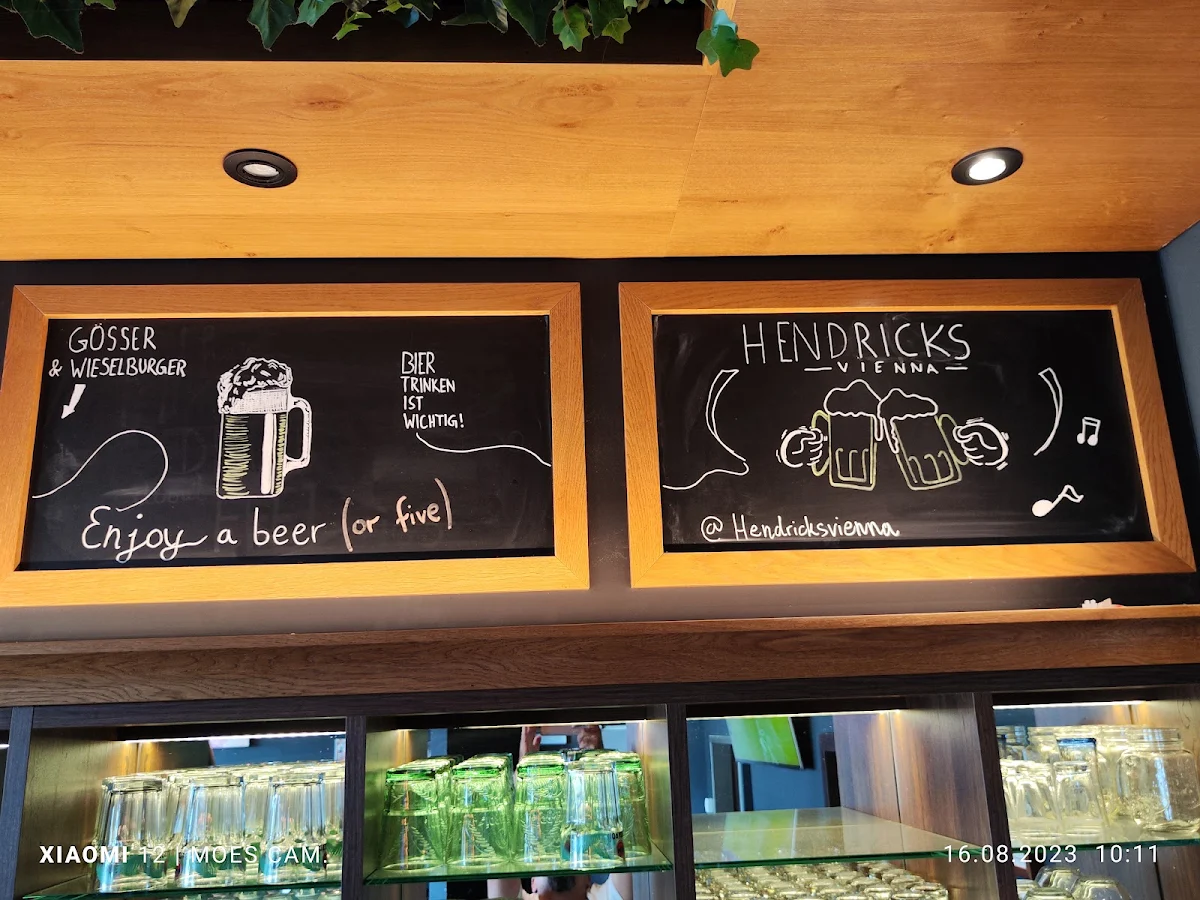 GÖSSER
& WIESELBURGER
BIER
TRINKEN
IST
WICHTIG!
Enjoy a beer (or five)
HENDRICKS
VIENNA
@ Hendricksvienna
XIAOMI 12 | MOES CAM.
16.08.2023 10:11